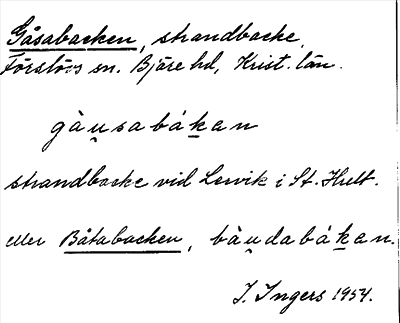 Gåsabacken, strandbacke,
Förslövs sn. Bjäre hd, Krist. län.
gàu̯sabákan
strandbacke vid Lervik i St. Hult.
eller Båtabacken, bàu̯dabákan.
I. Ingers 1954.